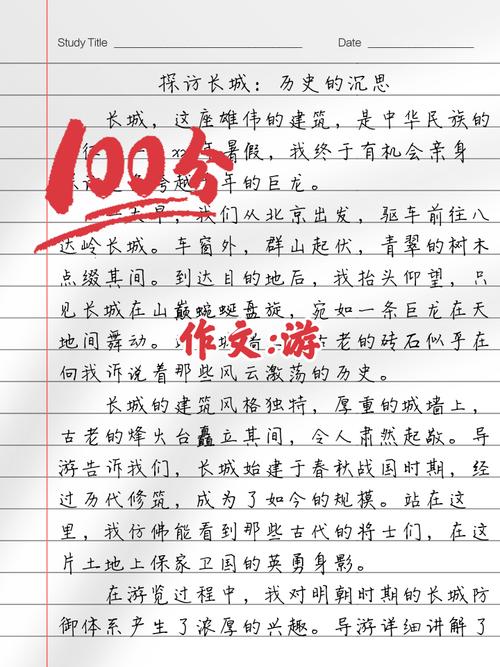 Study Title
Date
探访长城：历史的沉思
长城，这座雄伟的建筑，是中华民族的
暑假，我终于有机会亲身
年的巨龙。
100分
早，我们从北京出发，驱车前往八
达岭长城。车窗外，群山起伏，青翠的树木
点缀其间。到达目的地后，我抬头仰望，只
见长城在山巅蜿蜒盘旋，宛如一条巨龙在天
地间舞动。
老的砖石似乎在
作文:游
向我诉说着那些风云激荡的历史。
长城的建筑风格独特，厚重的城墙上，
古老的烽火台矗立其间，令人肃然起敬。导
游告诉我们，长城始建于春秋战国时期，经
过历代修筑，成为了如今的规模。站在这
里，我仿佛能看到那些古代的将士们，在这
片土地上保家卫国的英勇身影。
在游览过程中，我对明朝时期的长城防
御体系产生了浓厚的兴趣。导游详细讲解了